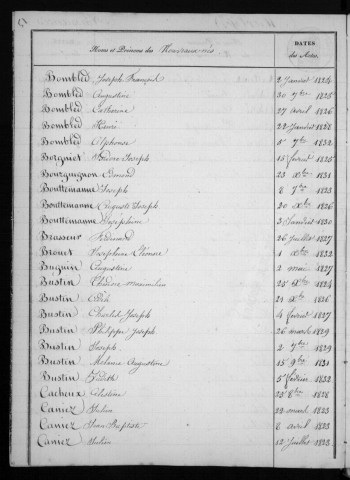 Noms et Prénoms des Nouveaux-nés DATES des Actes.
Bombled Joseph François 2 Janvier 1824
Bombled Augustine 20 7bre 1825
Bombled Catherine 27 avril 1826
Bombled Henri 22 Janvier 1828
Bombled Alphonse 5 7bre 1832
Borgniet Joseph 15 février 1825
Bourguignon Edmond 23 Xbre 1831
Bouttemanne Joseph 8 7bre 1823
Bouttemanne Auguste Joseph 20 Xbre 1826
Bouttemanne Joséphine 3 Janvier 1830
Brasseur 26 Juillet 1827
Brouet Joséphine Eléonore 1 Xbre 1832
Buguin Augustine 2 mai 1827
Bustin Maximilien 25 Xbre 1824
Bustin 21 Xbre 1826
Bustin Charles Joseph 4 février 1827
Bustin Philippe Joseph 26 mars 1829
Bustin Joseph 2 7bre 1829
Bustin Mélanie Augustine 15 9bre 1831
Bustin 5 février 1832
Cacheux Célestine 25 8bre 1828
Camez 22 mars 1823
Camez Jean Baptiste 8 avril 1823
Camez 12 Juillet 1823